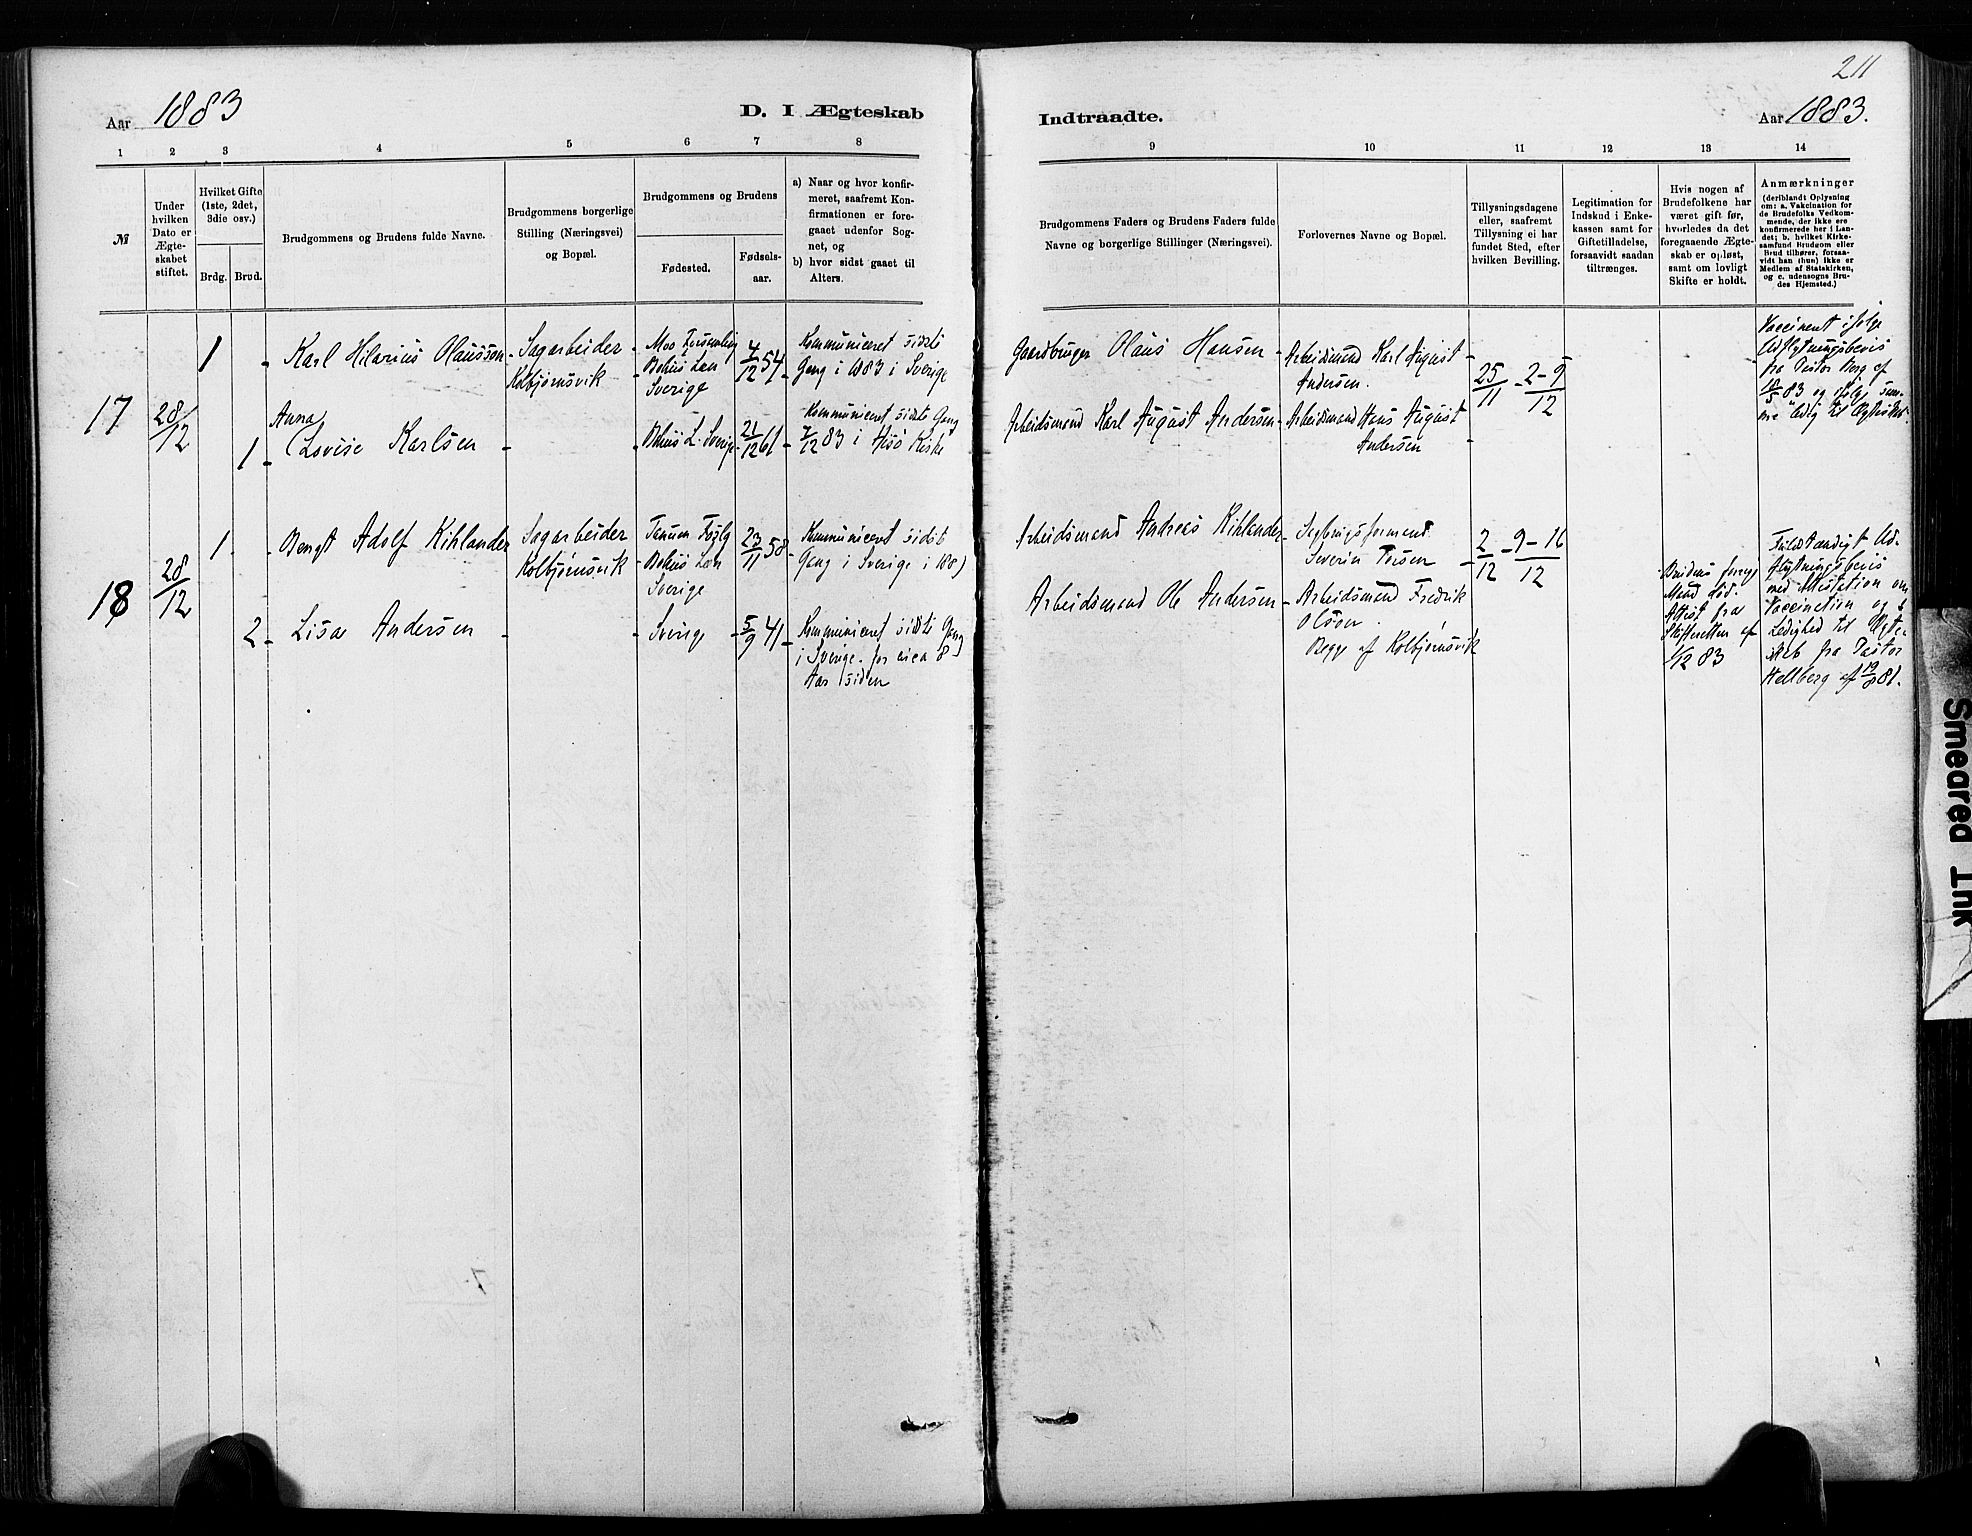 211
Aar 1883
D. I Ægteskab
Indtraadte.
Aar 1883.
1 2 3 4 5 6 7 8
9 10 11 12 13 14
№
Under
hvilken
Dato er
Ægte-
skabet
stiftet.
Hvilket Gifte
(1ste, 2det,
3die osv.)
Brdg. Brud.
Brudgommens og Brudens fulde Navne.
Brudgommens borgerlige
Stilling (Næringsvei)
og Bopæl.
Brudgommens og Brudens
Fødested.
Fødsels-
aar.
a) Naar og hvor konfir-
meret, saafremt Kon-
firmationen er fore-
gaaet udenfor Sog-
net, og
b) hvor sidst gaaet til
Alters.
Brudgommens Faders og Brudens Faders fulde
Navne og borgerlige Stillinger (Næringsvei).
Forlovernes Navne og Bopæl.
Tillysningsdagene
eller, saafremt
Tillysning ei har
fundet Sted, efter
hvilken Bevilling.
Legitimation for
Indskud i Enke-
kassen samt for
Giftetilladelse,
forsaavidt saadan
tiltrænges.
Hvis nogen af
Brudefolkene har
været gift før,
hvorledes da det
foregaaende Ægte-
skab er opløst,
samt om lovligt
Skifte er holdt.
Anmærkninger
(deriblandt Oplysning
om: a. Vakcination for
de Brudefolks Vedkom-
mende, der ikke ere
konfirmerede her i Lan-
det; b. hvilket Kirke-
samfund Brudgom eller
Brud tilhører, forsaa-
vidt han (hun) ikke er
Medlem af Statskirken,
og c. udensogns Bru-
des Hjemsted.)
17
28/12
1
Karl Hilarius Olausson
Sagarbeider
Kolbjørnsvik
Bohus Len
Sverige
4/12 54
Kommuniceret sidste
Gang i 1883 i Sverige
Gaardbruger Olaus Hansen
Arbeidsmand Karl August
Andersen.
25/11 - 2 - 9/12
Vaccineret ifølge
Udflytningsbevis
fra Pastor Berg af
18/5 83 og ifølge sam-
me ledig til Ægteskab.
1
Anna
Lovise Karlsen
Bohus L. Sverige
21/12 61
Kommuniceret sidste Gang
2/12 83 i Hisö Kirke
Arbeidsmand Karl August Andersen
Arbeidsmand Hans August
Andersen
18
28/12
1
Bengt Adolf Kihlander
Sagarbeider
Kolbjørnsvik
Tanum
Bohus Len
Sverige
23/11 58
Kommuniceret sidste
Gang i Sverige i 188
Arbeidsmand Andreas Kihlander
Severin Torsen
2/12 - 9 - 16/12
Fuldstændigt Ud-
flytningsbevis
med Attestation om
Vaccination og
Ledighed til Ægte-
skab fra Pastor
Hellberg af 19/8 81.
2
Lisa Andersen
Sverige
5/9 41
Kommuniceret sidste Gang
i Sverige for circa 8
Aar siden
Arbeidsmand Ole Andersen
Arbeidsmand Fredrik
Olsen.
Begge af Kolbjørnsvik
Brudens forrige
Mand død.
Attest fra
Skifteretten af
1/12 83
Smeared Ink